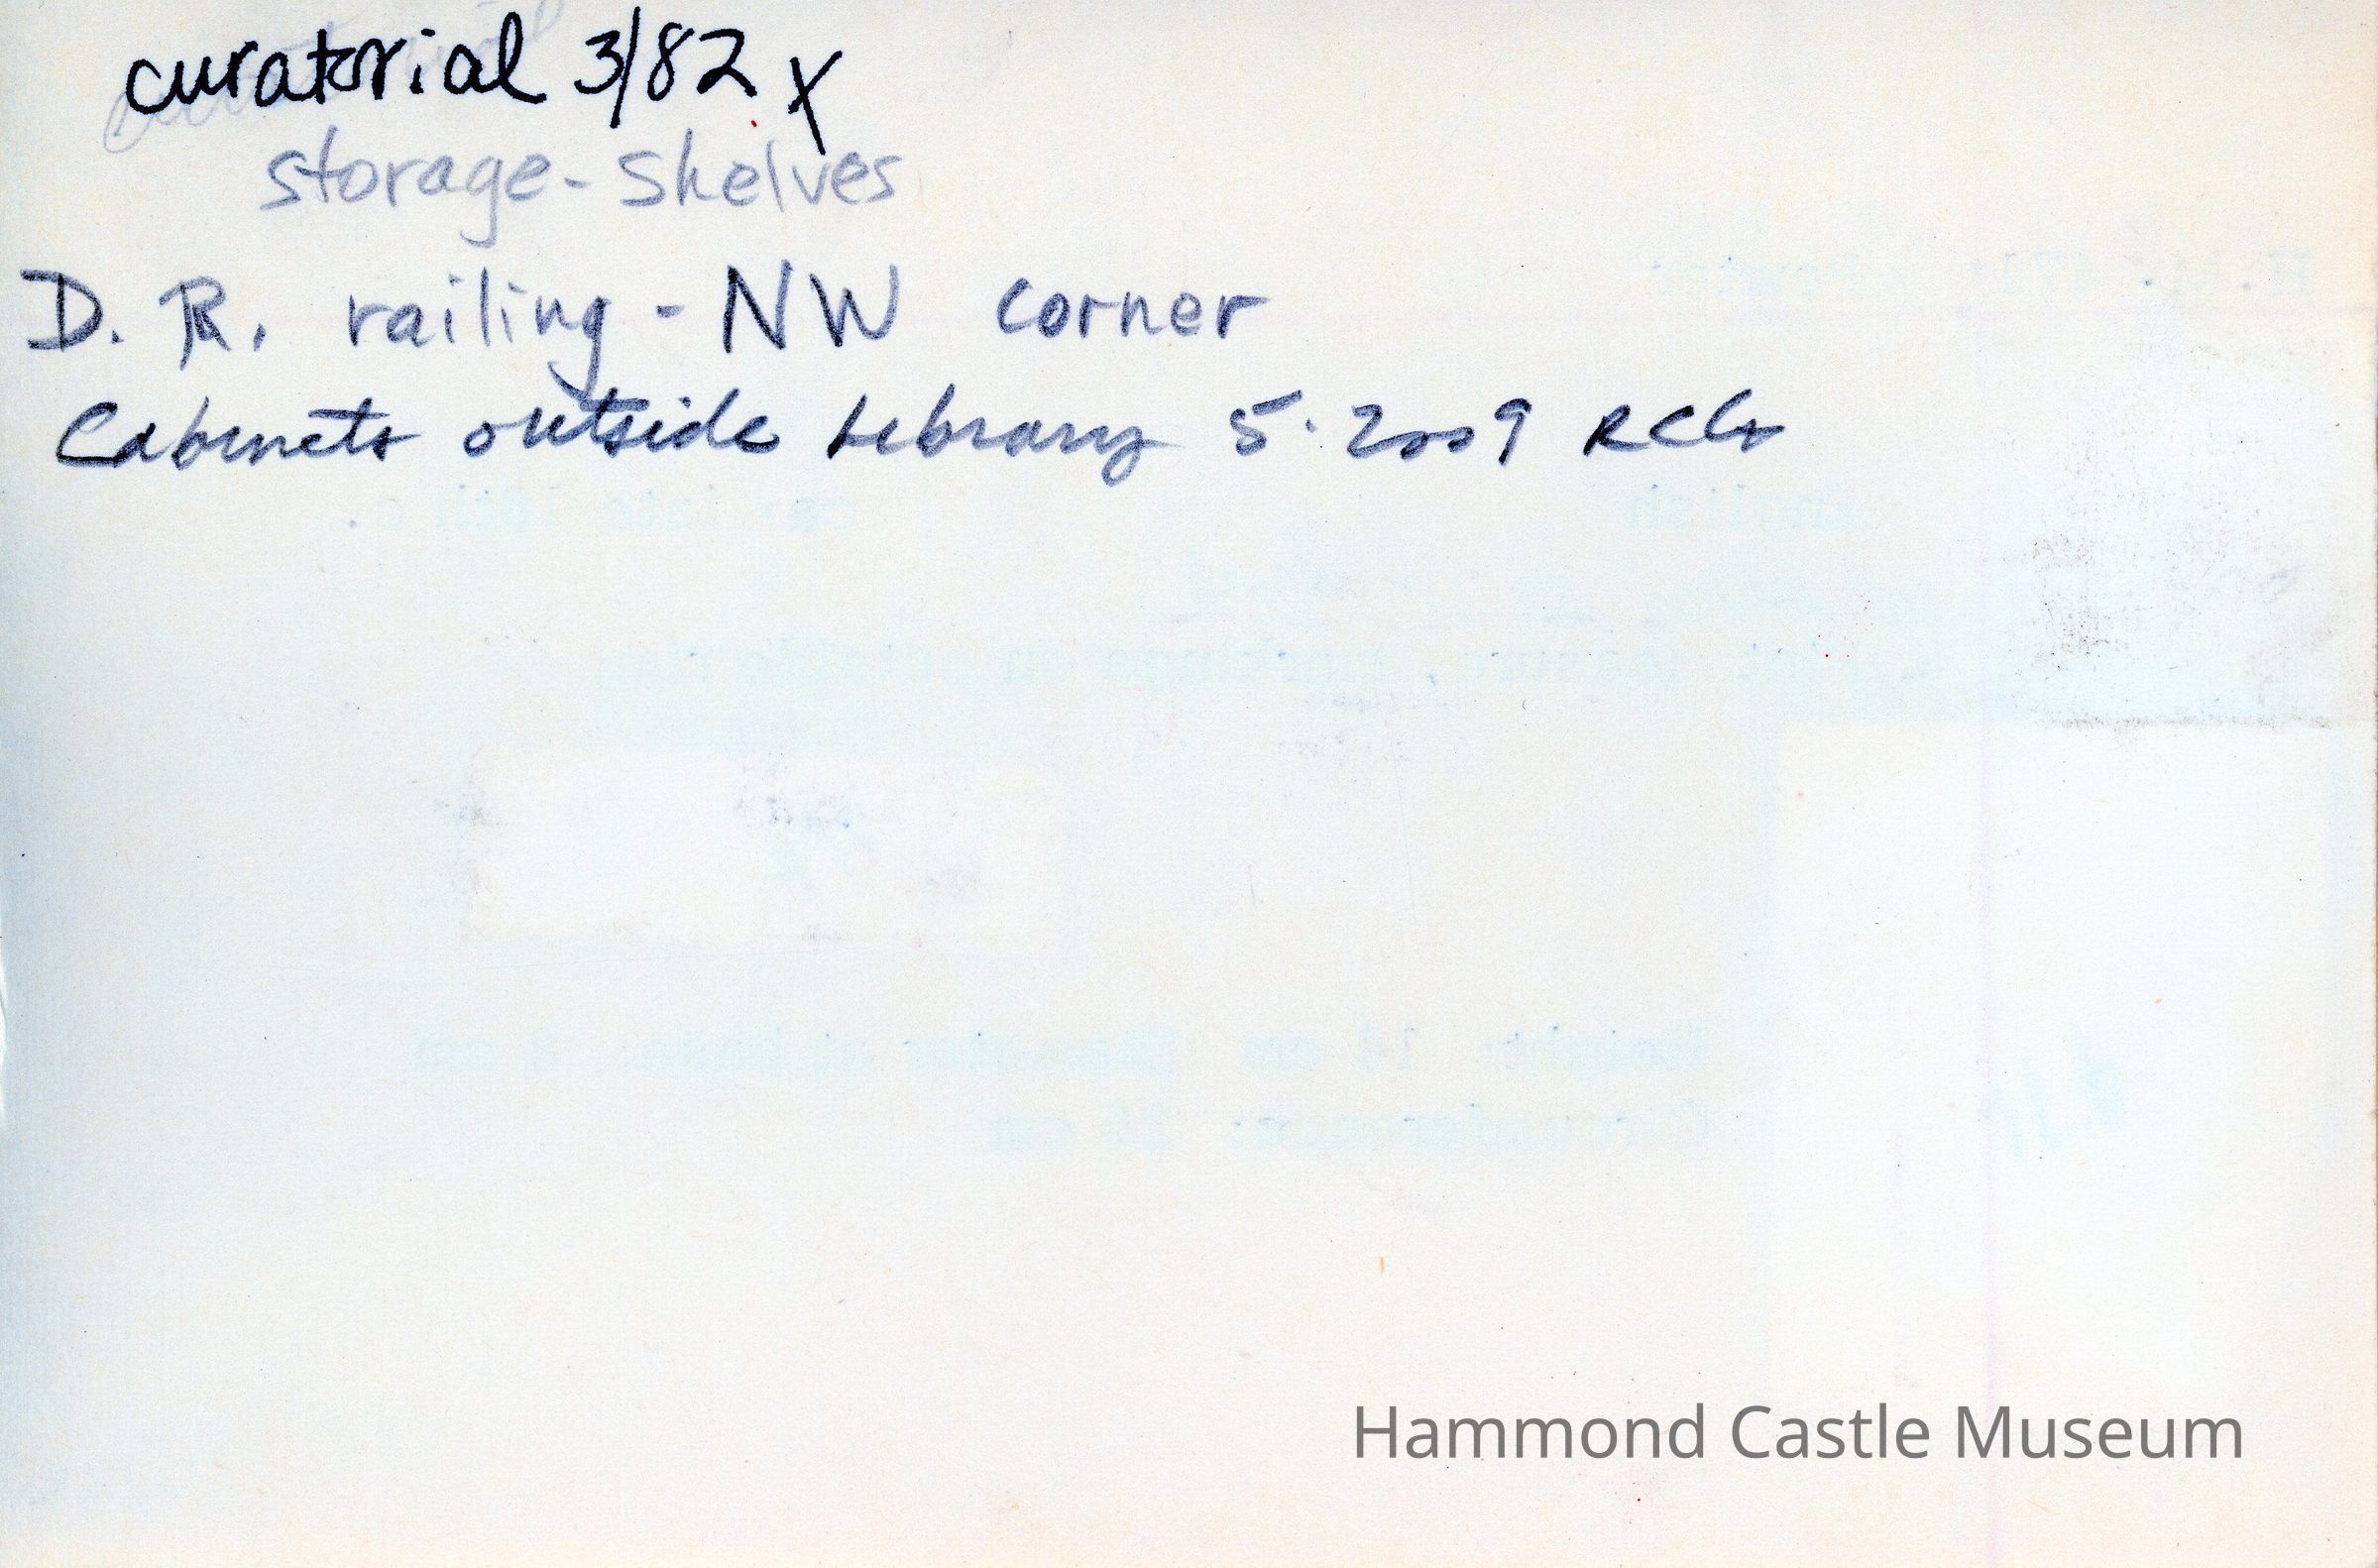 curatorial 3/82 x
storage - shelves
D. R. railing - NW corner
Cabinets outside Library 5. 2009
Hammond Castle Museum